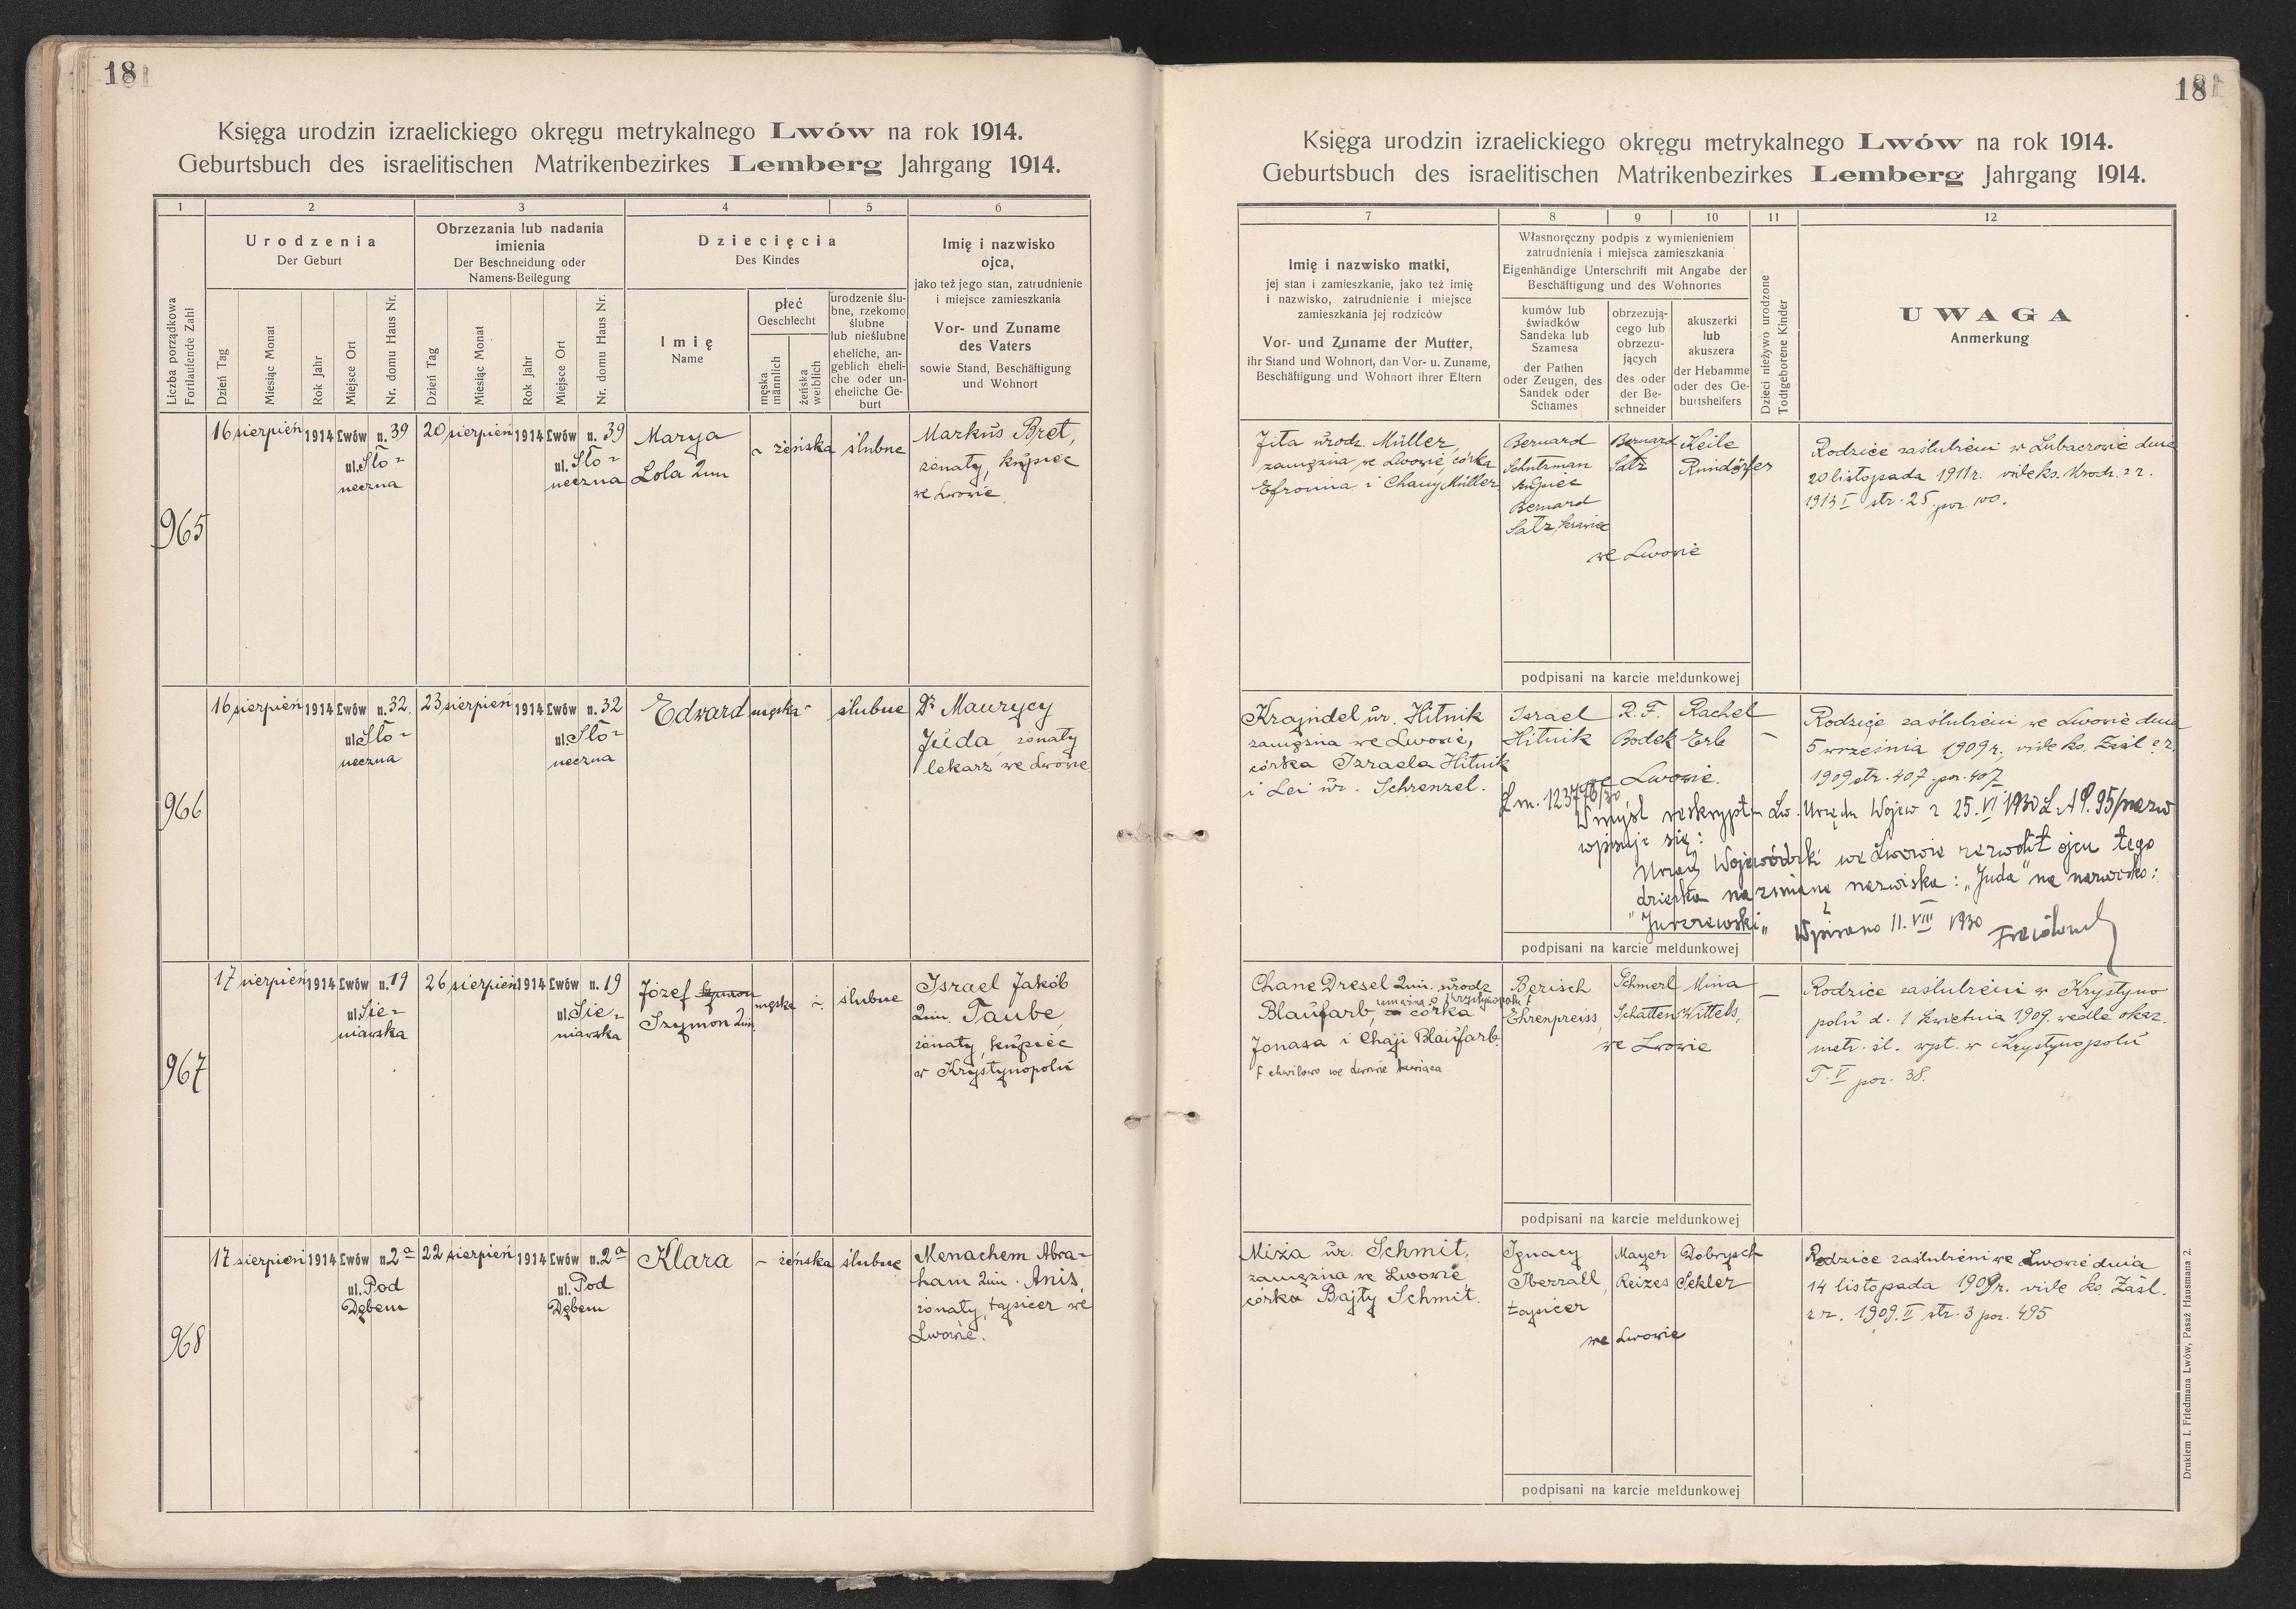 18
Księga urodzin izraelickiego okręgu metrykalnego Lwów na rok 1914.
Geburtsbuch des israelitischen Matrikenbezirkes Lemberg Jahrgang 1914.
1 2 3 4 5 6
Liczba porządkowa
Fortlaufende Zahl
Urodzenia
Der Geburt
Dzień Tag
Miesiąc Monat
Rok Jahr
Miejsce Ort
Nr. domu Haus Nr.
Obrzezania lub nadania
imienia
Der Beschneidung oder
Namens-Beilegung
Dzień Tag
Miesiąc Monat
Rok Jahr
Miejsce Ort
Nr. domu Haus Nr.
Dziecięcia
Des Kindes
Imię
Name
płeć
Geschlecht
męska
männlich
żeńska
weiblich
urodzenie ślu-
bne, rzekomo
ślubne
lub nieślubne
eheliche, an-
geblich eheli-
che oder un-
eheliche Ge-
burt
Imię i nazwisko
ojca,
jako też jego stan, zatrudnienie
i miejsce zamieszkania
Vor- und Zuname
des Vaters
sowie Stand, Beschäftigung
und Wohnort
965
16 sierpień 1914 Lwów n. 39
ul. Sło-
neczna
20 sierpień 1914 Lwów n. 39
ul. Sło-
neczna
Marya
Lola 2im
- żeńska
ślubne
Markus Bret,
żonaty, kupiec
we Lwowie
966
16 sierpień 1914 Lwów n. 32
ul. Sło-
neczna
23 sierpień 1914 Lwów n. 32
ul. Sło-
neczna
Edward
męska -
ślubne
Dr Maurycy
Juda, żonaty
lekarz we Lwowie
967
17 sierpień 1914 Lwów n. 19
ul. Sie-
niawska
26 sierpień 1914 Lwów n. 19
ul. Sie-
niawska
Józef Szymon
Szymon 2im.
męska -
ślubne
Israel Jakób
2im. Taube,
żonaty, kupiec
w Krystynopolu
968
17 sierpień 1914 Lwów n. 2a
ul. Pod
Dębem
22 sierpień 1914 Lwów n. 2a
ul. Pod
Dębem
Klara
- żeńska
ślubne
Menachem Abra-
ham 2im. Anis,
żonaty, tapicer we
Lwowie.
18
Księga urodzin izraelickiego okręgu metrykalnego Lwów na rok 1914.
Geburtsbuch des israelitischen Matrikenbezirkes Lemberg Jahrgang 1914.
7 8 9 10 11 12
Imię i nazwisko matki,
jej stan i zamieszkanie, jako też imię
i nazwisko, zatrudnienie i miejsce
zamieszkania jej rodziców
Vor- und Zuname der Mutter,
ihr Stand und Wohnort, dan Vor- u. Zuname,
Beschäftigung und Wohnort ihrer Eltern
Własnoręczny podpis z wymienieniem
zatrudnienia i miejsca zamieszkania
Eigenhändige Unterschrift mit Angabe der
Beschäftigung und des Wohnortes
kumów lub
świadków
Sandeka lub
Szamesa
der Pathen
oder Zeugen, des
Sandek oder
Schames
obrzezują-
cego lub
obrzezu-
jących
des oder
der Be-
schneider
akuszerki
lub
akuszera
der Hebamme
oder des Ge-
burtshelfers
Dzieci nieżywo urodzone
Todtgeborene Kinder
UWAGA
Anmerkung
Jita urodz. Müller
zamężna we Lwowie, córka
Efroima i Chany Müller
Bernard
Schutzman
kupiec
Bernard
Satz krawiec
Bernard
Satz
Keile
Rundörfer
we Lwowie
Rodzice zaślubieni w Lubaczowie dnia
20 listopada 1911 r. vide ks. Urodz. z r.
1913 I str. 25 por. 100.
podpisani na karcie meldunkowej
Krajndel ur. Hitnik
zamężna we Lwowie,
córka Izraela Hitnik
i Lei ur. Schrenzel.
Israel
Hitnik
R. F.
Bodek
Rachel
Erb
-
we Lwowie.
Rodzice zaślubieni we Lwowie dnia
5 września 1909 r, vide ks. Zaśl z r.
1909 str. 407 por. 407
L m. 123776/30
W myśl reskryptu Lw. Urzędu Wojew z 25.VI 1930 L. AP. 95/nazw
wpisuje się:
Urząd Wojewódzki we Lwowie zezwolił ojcu tego
dziecka na zmianę nazwiska: "Juda" na nazwisko:
"Jurzewski" Wpisano 11. VIII 1930
podpisani na karcie meldunkowej
Chane Dresel 2im. urodz
Blaufarb, zamężna w Krystynopolu F
córka
Jonasa i Chaji Blaufarb.
F chwilowo we Lwowie bawiąca
Berisch
Ehrenpreiss,
Schmerl
Schatten
Mina
Kittels,
-
we Lwowie
Rodzice zaślubieni w Krystyno
polu d. 1 kwietnia 1909. wedle okaz.
metr. śl. wyst. w Krystynopolu
T. V por. 38.
podpisani na karcie meldunkowej
Miza ur. Schmit,
zamężna we Lwowie,
córka Bajty Schmit.
Ignacy
Iberzall,
tapicer
Mayer
Reizes
Dobrysch
Sekler
we Lwowie
Rodzice zaślubieni we Lwowie dnia
14 listopada 1909 r. vide ks. Zaśl.
z r. 1909. II str. 3 por. 495
podpisani na karcie meldunkowej
Drukiem I. Friedmana Lwów, Pasaż Hausmana 2.